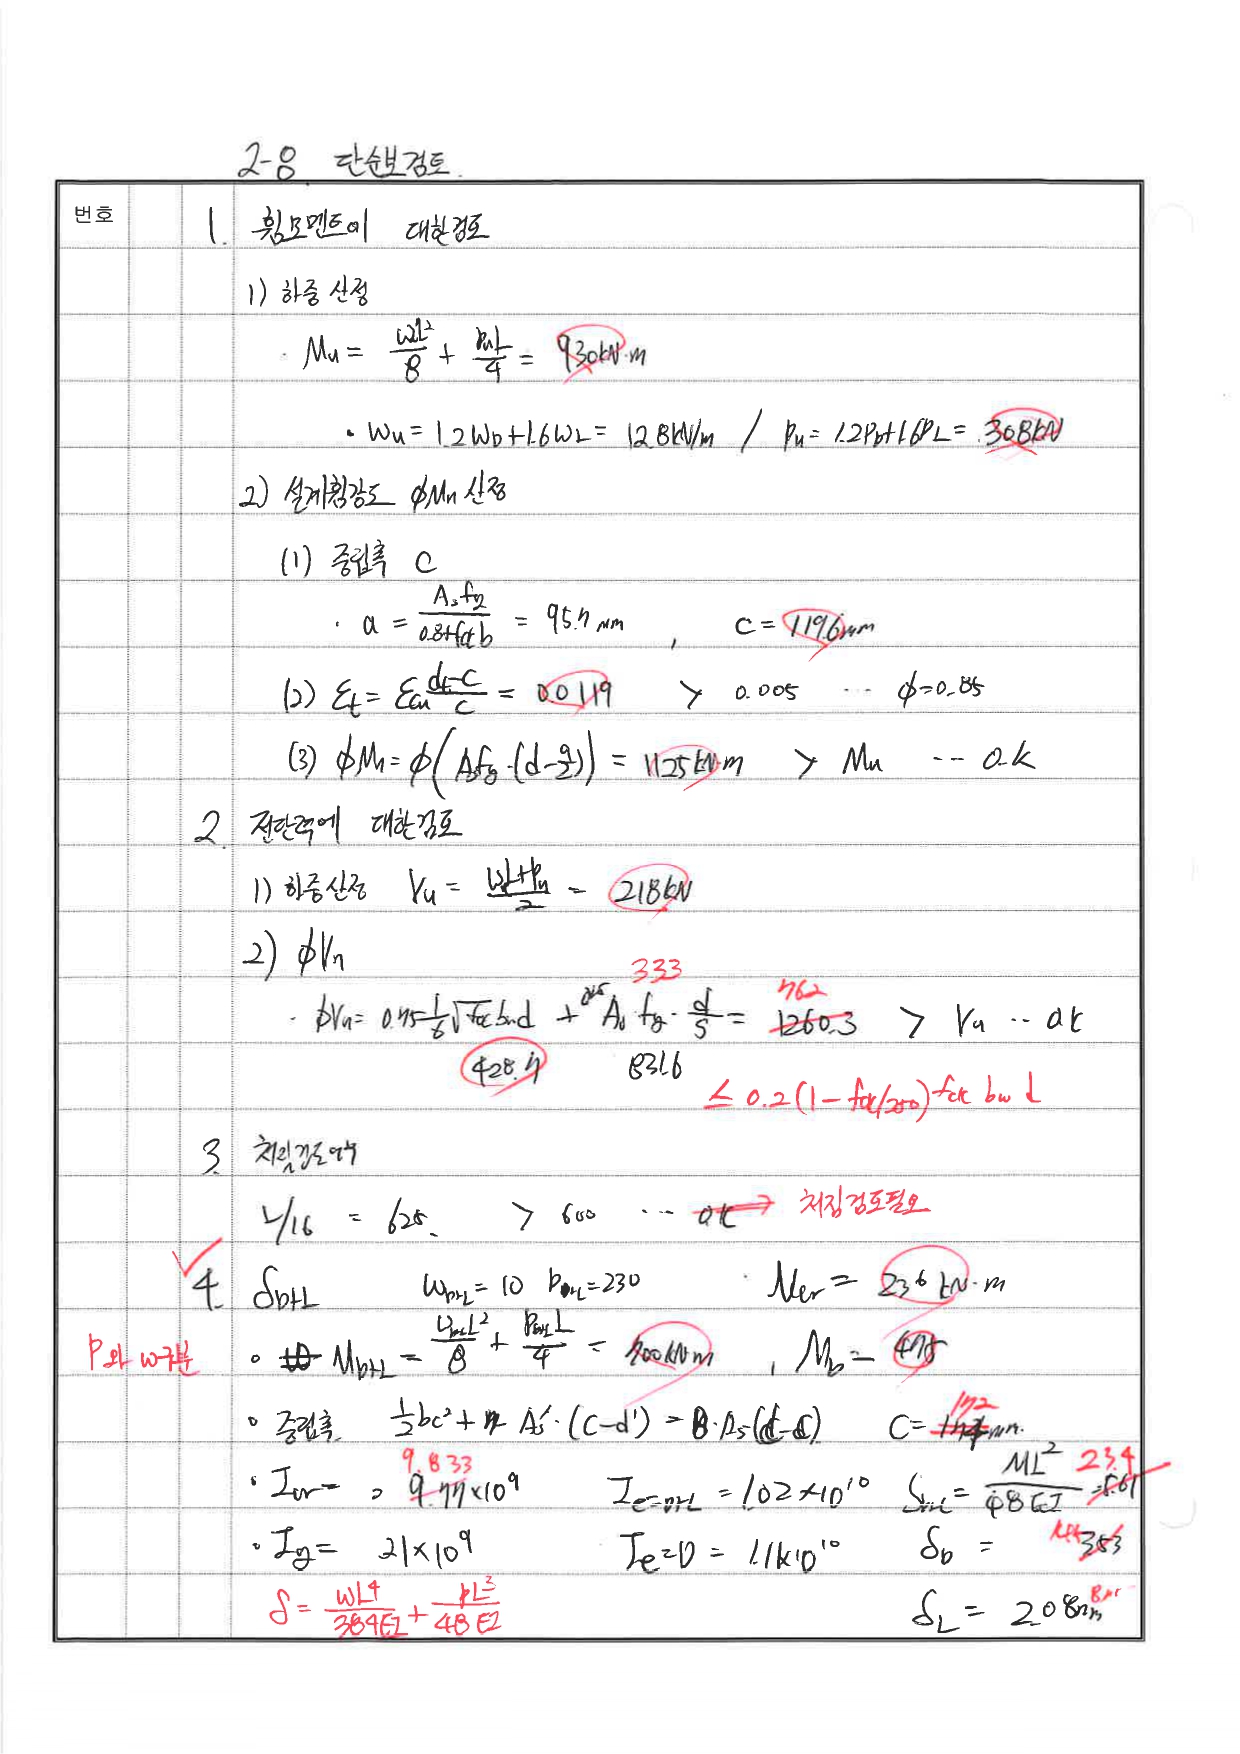 2-8 단순보검토.
번호
1. 휨모멘트에 대한검토
1) 하중 산정
· Mu = wl²/8 + PuL/4 = 930kN·m
· Wu = 1.2WD+1.6WL = 12.8kN/m / Pu = 1.2PD+1.6PL = 308kN
2) 설계휨강도 φMn 산정
(1) 중립축 C
· a = As fy / 0.85fck b = 95.7mm , C = 119.6mm
(2) εt = εcu (dt-c)/c = 0.0119 > 0.005 ··· φ=0.85
(3) φMn = φ(As fy·(d-a/2)) = 1125kN·m > Mu ··· O.K
2. 전단력에 대한검토
1) 하중산정 Vu = (wl+Pu)/2 = 218kN
2) φVn
333 762
· φVn = 0.75 1/6 √fck bw d + 0.75 Av fy · d/s = 1260.3 > Vu ·· O.K
428.7 831.6
≤ 0.2(1-fck/250) fck bw d
3. 처짐검토여부
L/16 = 625. > 600 ··· O.K → 처짐검토필요
4. δD+L WD+L = 10 PD+L = 230 · Mcr = 236 kN·m
P와 w구분
· MD+L = WD+L L²/8 + PD+L L/4 = 700kN·m , MD = 475
172
· 중립축 ½bc² + n As'·(c-d') = 8·As(d-c) C = mm.
9.833 23.4
· Icr = 9.77×10⁹ Ie=D+L = 1.02×10¹⁰ δD+L = ML²/48EI = 5.61
· Ig = 21×10⁹ Ie=D = 1.1×10¹⁰ δD = 3.53
δ = WL⁴/384EI + PL³/48EI δL = 2.08mm